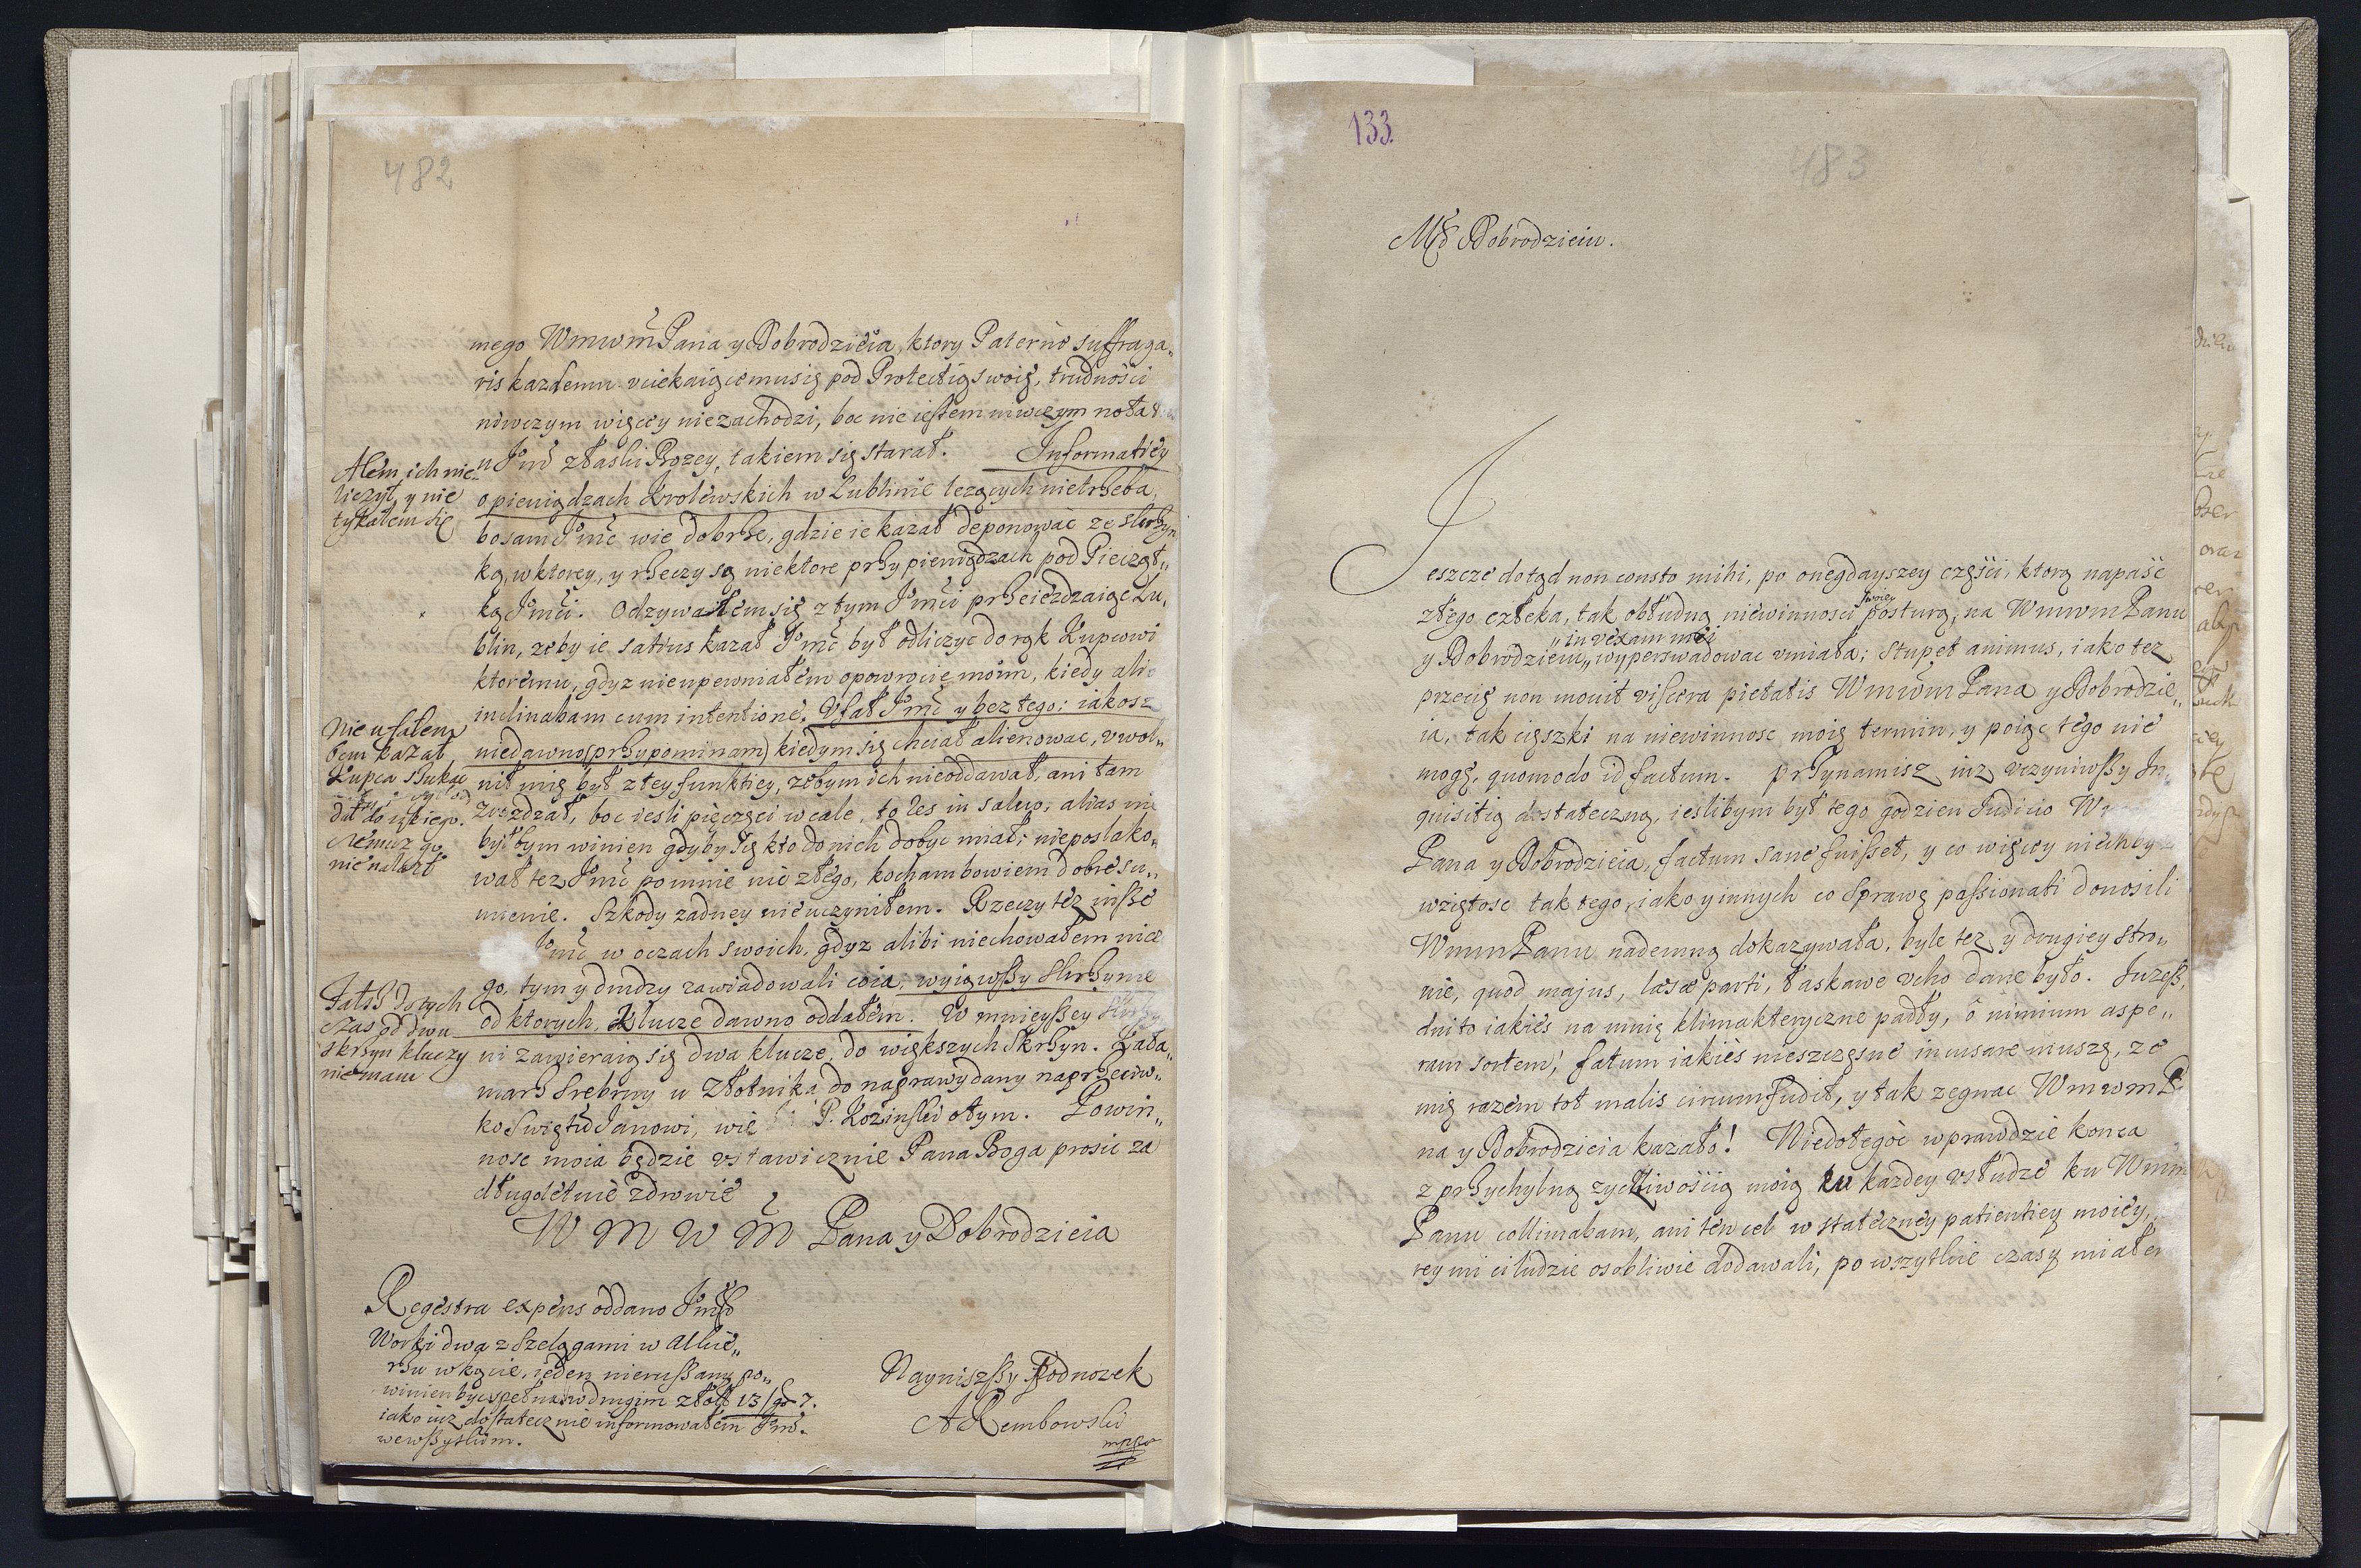 482
mego WmwmPana y Dobrodzieia, ktory Paterne suffraga„
ris kazdemu vciekaiącemusię pod Protectią swoię, trudności
niwczym więcey niezachodzi, boc nie iestem niwczym notat
u Jmć złaski Bozey, takiem się starał. Informatiey
Alem ich nie
liczył, y nie
tykałem się
o pieniądzach Krolewskich w Lublinie lezących nietrzeba,
bo sam Jmć wie dobrze, gdzie ie kazał deponować ze skrzyn
ką, w ktorey, y rzeczy są niektore przy pieniądzach pod Pieczęt„
ką Jmći. Odzywałem się z tym Jmći przeiezdzaiąc Lu,
blin, zeby ie satius kazał Jmć był odliczyc do rąk Kupcowi
ktoremu, gdyz nieupewniałem o powrocie moim, kiedy alio
inclinabam cum intentione. Vfał Jmć y bez tego: iakosz
Nie ufałem
bom kazał
Kupca szukac
dał do iakiego.
Czemuz go
nie nalazł
niedawno (przypominam) kiedym się chciał alienowac, vwol„
nił mię był z tey funktiey, zebym ich nieoddawał, ani tam
zoezdzał, boc iesli pięczęci wcale, to res in salvo, alias nie
byłbym winien gdyby się kto do nich dobyc miał; nieposlako„
wał tez Jmć po mnie nic złego, kocham bowiem dobre su„
mnienie. Szkody zadney nieuczyniłem. Rzeczy tez insze
Jmć w oczach swoich, gdyz alibi niechowałem nicze
go, tym y drudzy zawiadowali coia, wyiąwszy skrzynie
Fałsz do tych
czas od dwu
skrzyn kluczy
nie mam
od ktorych, Klucze dawno oddałem. W mnieyszey skrzy
ni zawieraią się dwa klucze, do większych skrzyn. Kała„
marz srebrny u Złotnika do naprawy dany naprzeciw„
ko Swiętu Janowi, wie P. Kozinski o tym. Powin„
nosc moia będzie vstawicznie Pana Boga prosic za
długoletnie zdrowie
W M W M Pana y Dobrodzieia
Regestra expens oddano Jmć
Worki dwa z szelągami w Alkie„
rzu w kącie, ieden nieruszany po„
winien byc spełna, w drugim złot 13/gr 7.
iako iuz dostatecznie informowałem Jmć.
wewszytkim.
Naynizszy Podnozek
A Rembowski
mpp
133.
483
Mć Dobrodzieiu.
Jeszcze dotąd non consto mihi, po onegdayszey części, ktorą napaść
złego człeka, tak obłudną niewinności swoiey posturą, na WmwmPanu
y Dobrodzieiu „in vexam meã„ wyperswadowac vmiała; Stupet animus, iako tez
przecię non movit viscera pietatis WmwmPana y Dobrodzie„
ia, tak cięszki na niewinnosc moię termin, y poiąc tego nie
mogę, quomodo id factum. przynamisz iuz vczyniwszy In„
quisitią dostateczną, ieslibym był tego godzien Judicio W
Pana y Dobrodzieia, factum sane fuisset, y co więcey niechby
wziętosc tak tego, iako y innych co Sprawę passionati donosili
WmmPanu nademną dokazywała, byle tez y drugiey stro„
nie, quod majus, læsæ parti, łaskawe vcho dane było. Juzesz,
dni to iakies na mnię klimakteryczne padły, ô nimium aspe„
ram sortem! fatum iakies nieszczęsne incusare muszę, ze
mię razem tot malis circumfudit, y tak zegnac WmwmP
na y Dobrodzieia kazało! Niedotegoć wprawdzie konca
z przychylną zyczliwością moią ku kazdey vsłudze ku Wmm
Panu collimabam, ani ten cel w stateczney patientiey moiey,
rey mi ci ludzie osobliwie dodawali, po wszytkie czasy miałem